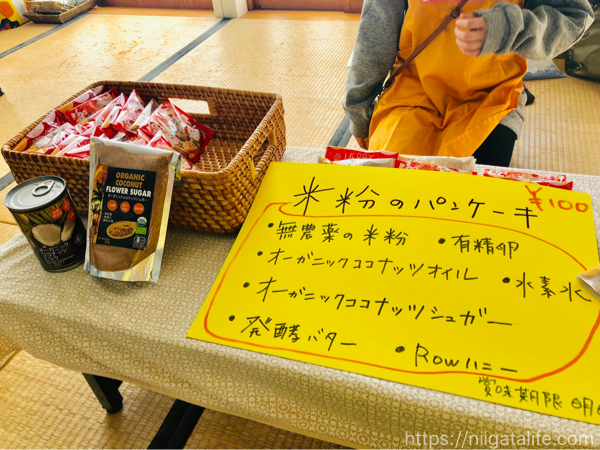 米粉のパンケーキ ¥100
・無農薬の米粉 ・有精卵
・オーガニックココナッツオイル ・水素水
・オーガニックココナッツシュガー
・発酵バター ・Rowハニー
賞味期限 明
ORGANIC
COCONUT
FLOWER SUGAR
https://niigatalife.com